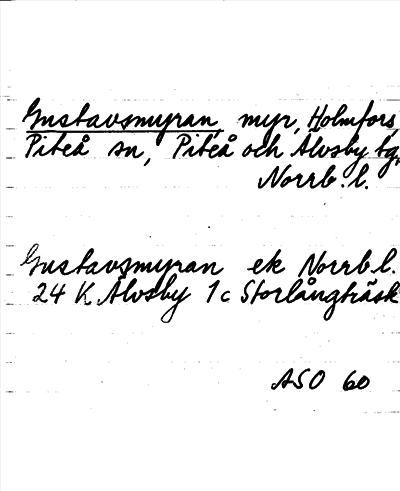 Gustavsmyran, myr, Holmfors,
Piteå sn, Piteå och Älvsby tg,
Norrb. l.
Gustavsmyran ek Norrb l.
24 K Älvsby 1 c Storlångträsk
ASO 60